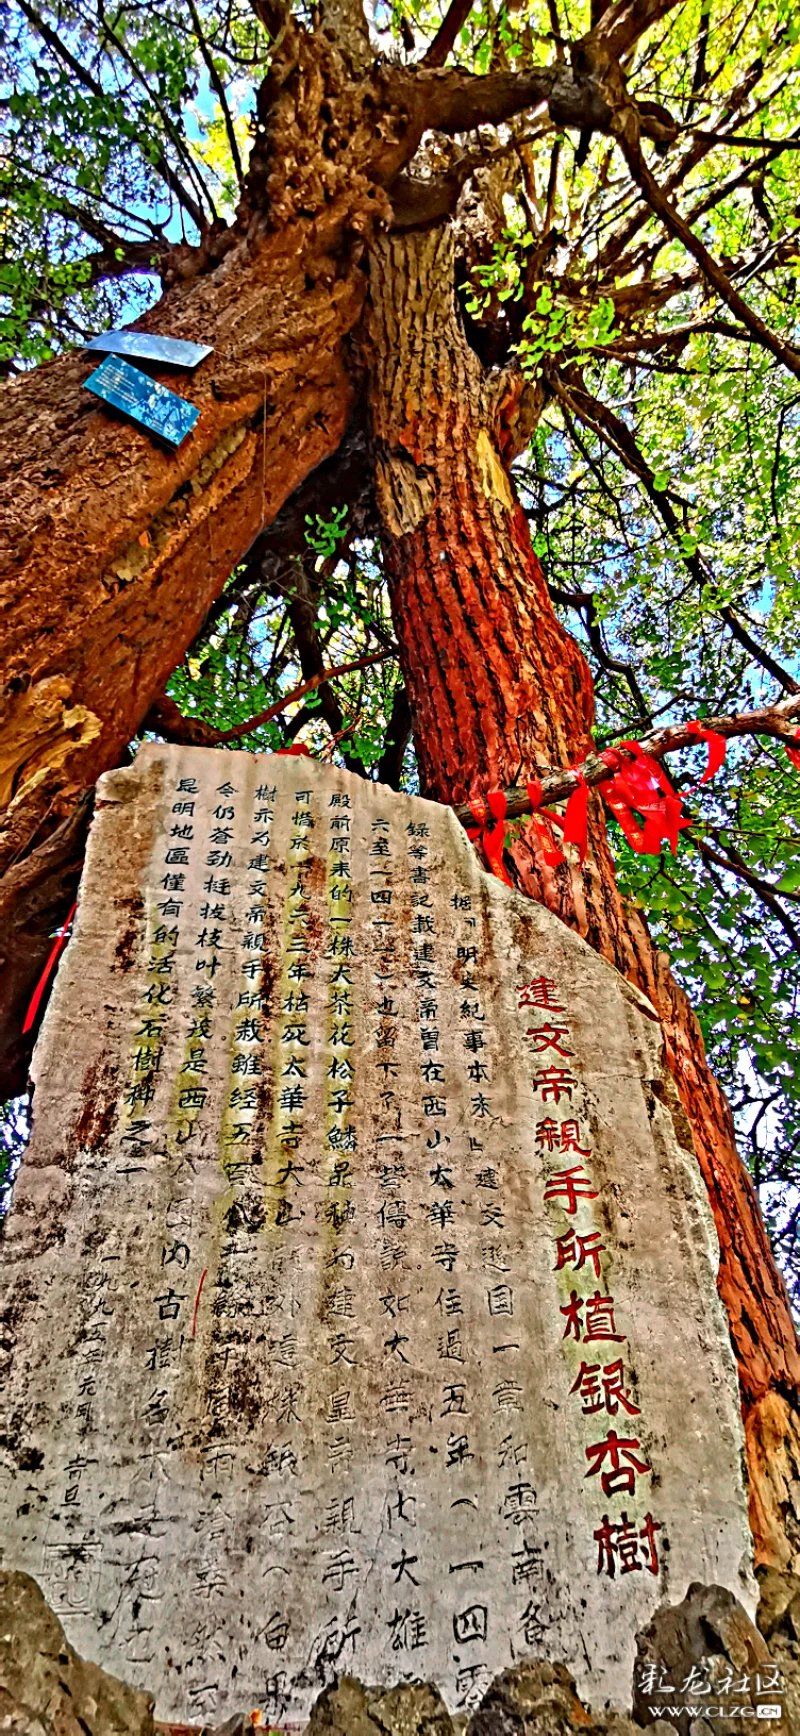 建文帝親手所植銀杏樹
据『明史紀事本末』建文遜国一章和雲南备
録等書記載建文帝曾在西山太華寺住過五年（一四零
六至一四一一）也留下了一些傳説如太華寺内大雄
殿前原来的一株大茶花松子鱗品种为建文皇帝親手所
可惜於一九六三年枯死太華寺大山門外這株銀杏（白果
樹亦为建文帝親手所栽雖经五百
令仍蒼劲挺拔枝叶繁茂是西山公园内古樹名木之冠也
昆明地區僅有的活化石樹种之一
一九九五年元月吉旦
彩龙社区
WWW.CLZG.CN